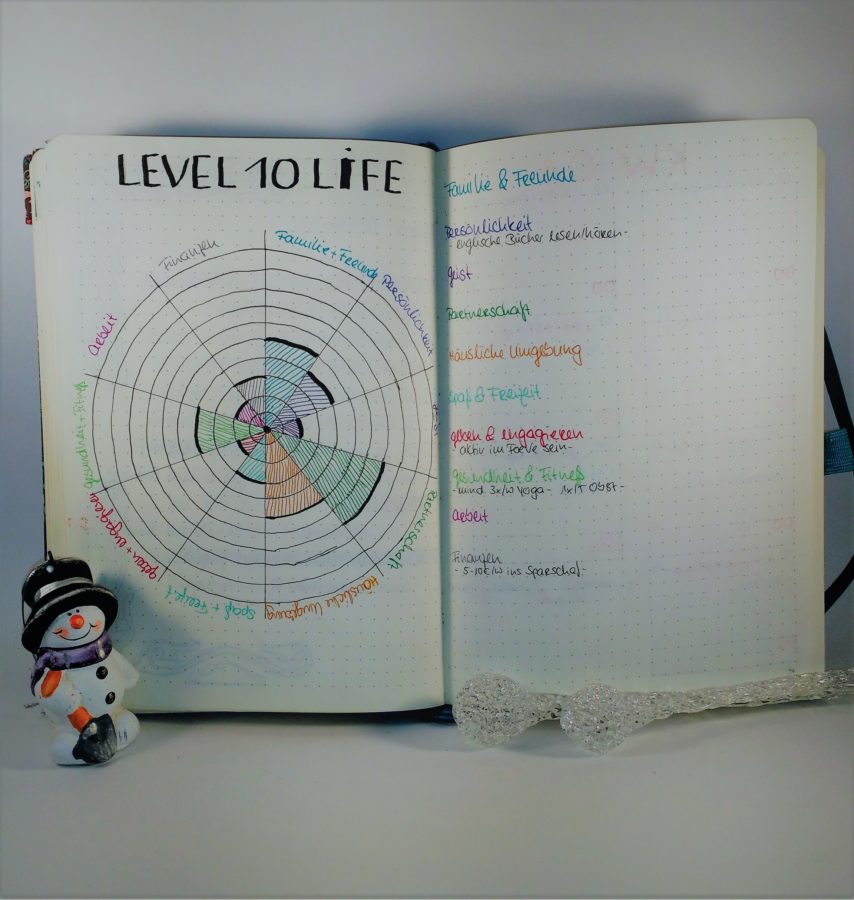 LEVEL 10 LiFE
Familie + Freunde
Persönlichkeit
Geist
Partnerschaft
Häusliche Umgebung
Spaß + Freizeit
geben + engagieren
gesundheit + Fitneß
Arbeit
Finanzen
Familie & Freunde
Persönlichkeit
- englische Bücher lesen/hören -
Geist
Partnerschaft
Häusliche Umgebung
Spaß & Freizeit
geben & engagieren
- aktiv im sein -
gesundheit & Fitneß
- mind. 3x/W Yoga - 1x/T Obst -
Arbeit
Finanzen
- 5-10€/W ins Sparschaf -